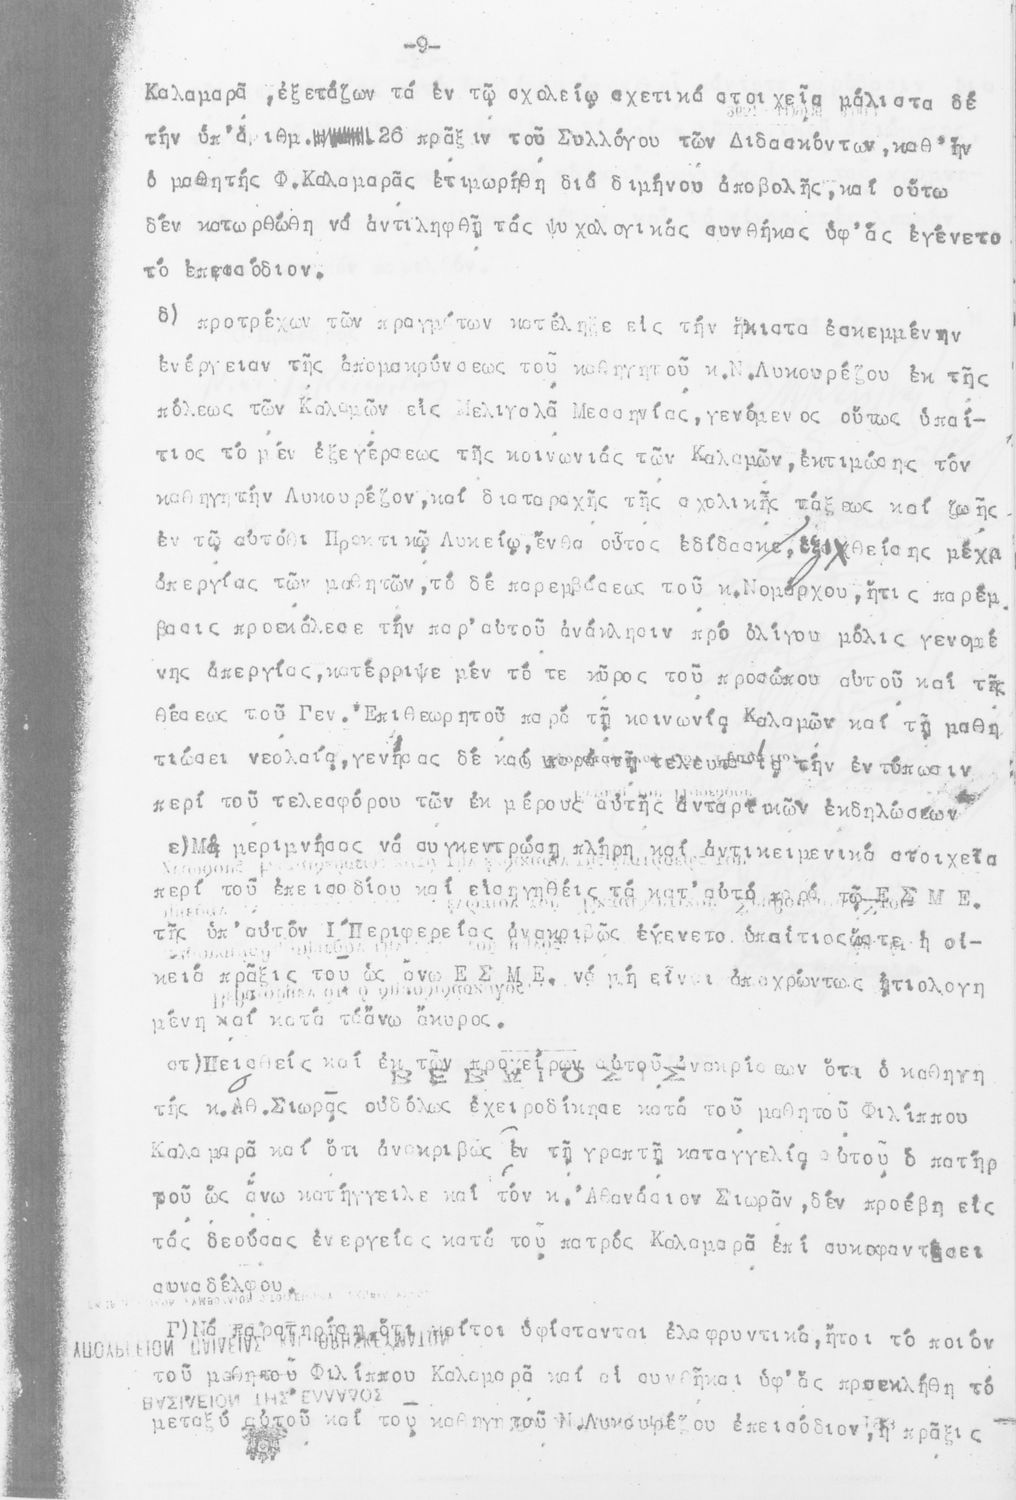 -9-
Καλαμαρᾶ ,ἐξετάζων τά ἐν τῷ σχολείῳ σχετικά στοιχεῖα μάλιστα δέ
τήν ὑπ'ἀριθμ. 26 πρᾶξιν τοῦ Συλλόγου τῶν Διδασκόντων,καθ'ἥν
ὁ μαθητής Φ.Καλαμαρᾶς ἐτιμωρήθη διά διμήνου ἀποβολῆς,καί οὕτω
δέν κατωρθώθη νά ἀντιληφθῇ τάς ψυχολογικάς συνθήκας ὑφ'ἅς ἐγένετο
τό ἐπεισόδιον.
δ) προτρέχων τῶν πραγμάτων κατέληξε εἰς τήν ἥκιστα ἐσκεμμένην
ἐνέργειαν τῆς ἀπομακρύνσεως τοῦ καθηγητοῦ κ.Ν.Λυκουρέζου ἐκ τῆς
πόλεως τῶν Καλαμῶν εἰς Μελιγαλᾶ Μεσσηνίας,γενόμενος οὕτως ὑπαί-
τιος τό μέν ἐξεγέρσεως τῆς κοινωνιάς τῶν Καλαμῶν,ἐκτιμώσης τόν
καθηγητήν Λυκουρέζον,καί διαταραχῆς τῆς σχολικῆς τάξεως καί ζωῆς
ἐν τῷ αὐτόθι Πρακτικῷ Λυκείῳ,ἔνθα οὗτος ἐδίδασκε, ἐξαχθείσης μέχρι
ἀπεργίας τῶν μαθητῶν,τό δέ παρεμβάσεως τοῦ κ.Νομάρχου,ἥτις παρέμ.
βασις προεκάλεσε τήν παρ'αὐτοῦ ἀνάκλησιν πρό ὀλίγου μόλις γενομέ
νης ἀπεργίας,κατέρριψε μέν τό τε κῦρος τοῦ προσώπου αὐτοῦ καί τῆς
θέσεως τοῦ Γεν.'Επιθεωρητοῦ παρά τῇ κοινωνίᾳ Καλαμῶν καί τῇ μαθη
τιώσει νεολαίᾳ,γενήσας δέ καί παρά τῇ τελευταίᾳ τήν ἐντύπωσιν
περί τοῦ τελεσφόρου τῶν ἐκ μέρους αὐτῆς ἀνταρτικῶν ἐκδηλώσεων
ε)Μή μεριμνήσας νά συγκεντρώσῃ πλήρη καί ἀντικειμενικά στοιχεῖα
περί τοῦ ἐπεισοδίου καί εἰσηγηθείς τά κατ'αὐτό παρά τῷ Ε Σ Μ Ε.
τῆς ὑπ'αὐτόν Ι'Περιφερείας ἀνακριβῶς ἐγένετο ὑπαίτιος ὥστε ἡ οἰ-
κεία πρᾶξις τοῦ ὡς ἄνω Ε Σ Μ Ε. νά μή εἶναι ἀποχρώντως ᾐτιολογη
μένη καί κατά τάἄνω ἄκυρος.
στ)Πεισθείς καί ἐκ τῶν προχείρων αὐτοῦ ἀνακρίσεων ὅτι ὁ καθηγη
ΒΕΒΑΙΩΣΙΣ
τής κ.Αθ.Σιωρᾶς οὐδόλως ἐχειροδίκησε κατά τοῦ μαθητοῦ Φιλίππου
Καλαμαρᾶ καί ὅτι ἀνακριβῶς ἐν τῇ γραπτῇ καταγγελίᾳ αὐτοῦ ὁ πατήρ
τοῦ ὡς ἄνω κατήγγειλε καί τόν κ.'Αθανάσιον Σιωρᾶν,δέν προέβη εἰς
τάς δεούσας ἐνεργείας κατά τοῦ πατρός Καλαμαρᾶ ἐπί συκοφαντήσει
συναδέλφου.
Γ)Νά παρατηρίση ὅτι καίτοι ὑφίστανται ἐλαφρυντικά,ἤτοι τό ποιόν
τοῦ μαθητοῦ Φιλίππου Καλαμαρᾶ καί αἱ συνθῆκαι ὑφ'ἅς προεκλήθη τό
ΒΑΣΙΛΕΙΟΝ ΤΗΣ ΕΛΛΑΔΟΣ
μεταξύ αὐτοῦ καί τοῦ καθηγητοῦ Ν.Λυκουρέζου ἐπεισόδιον,ἡ πρᾶξις